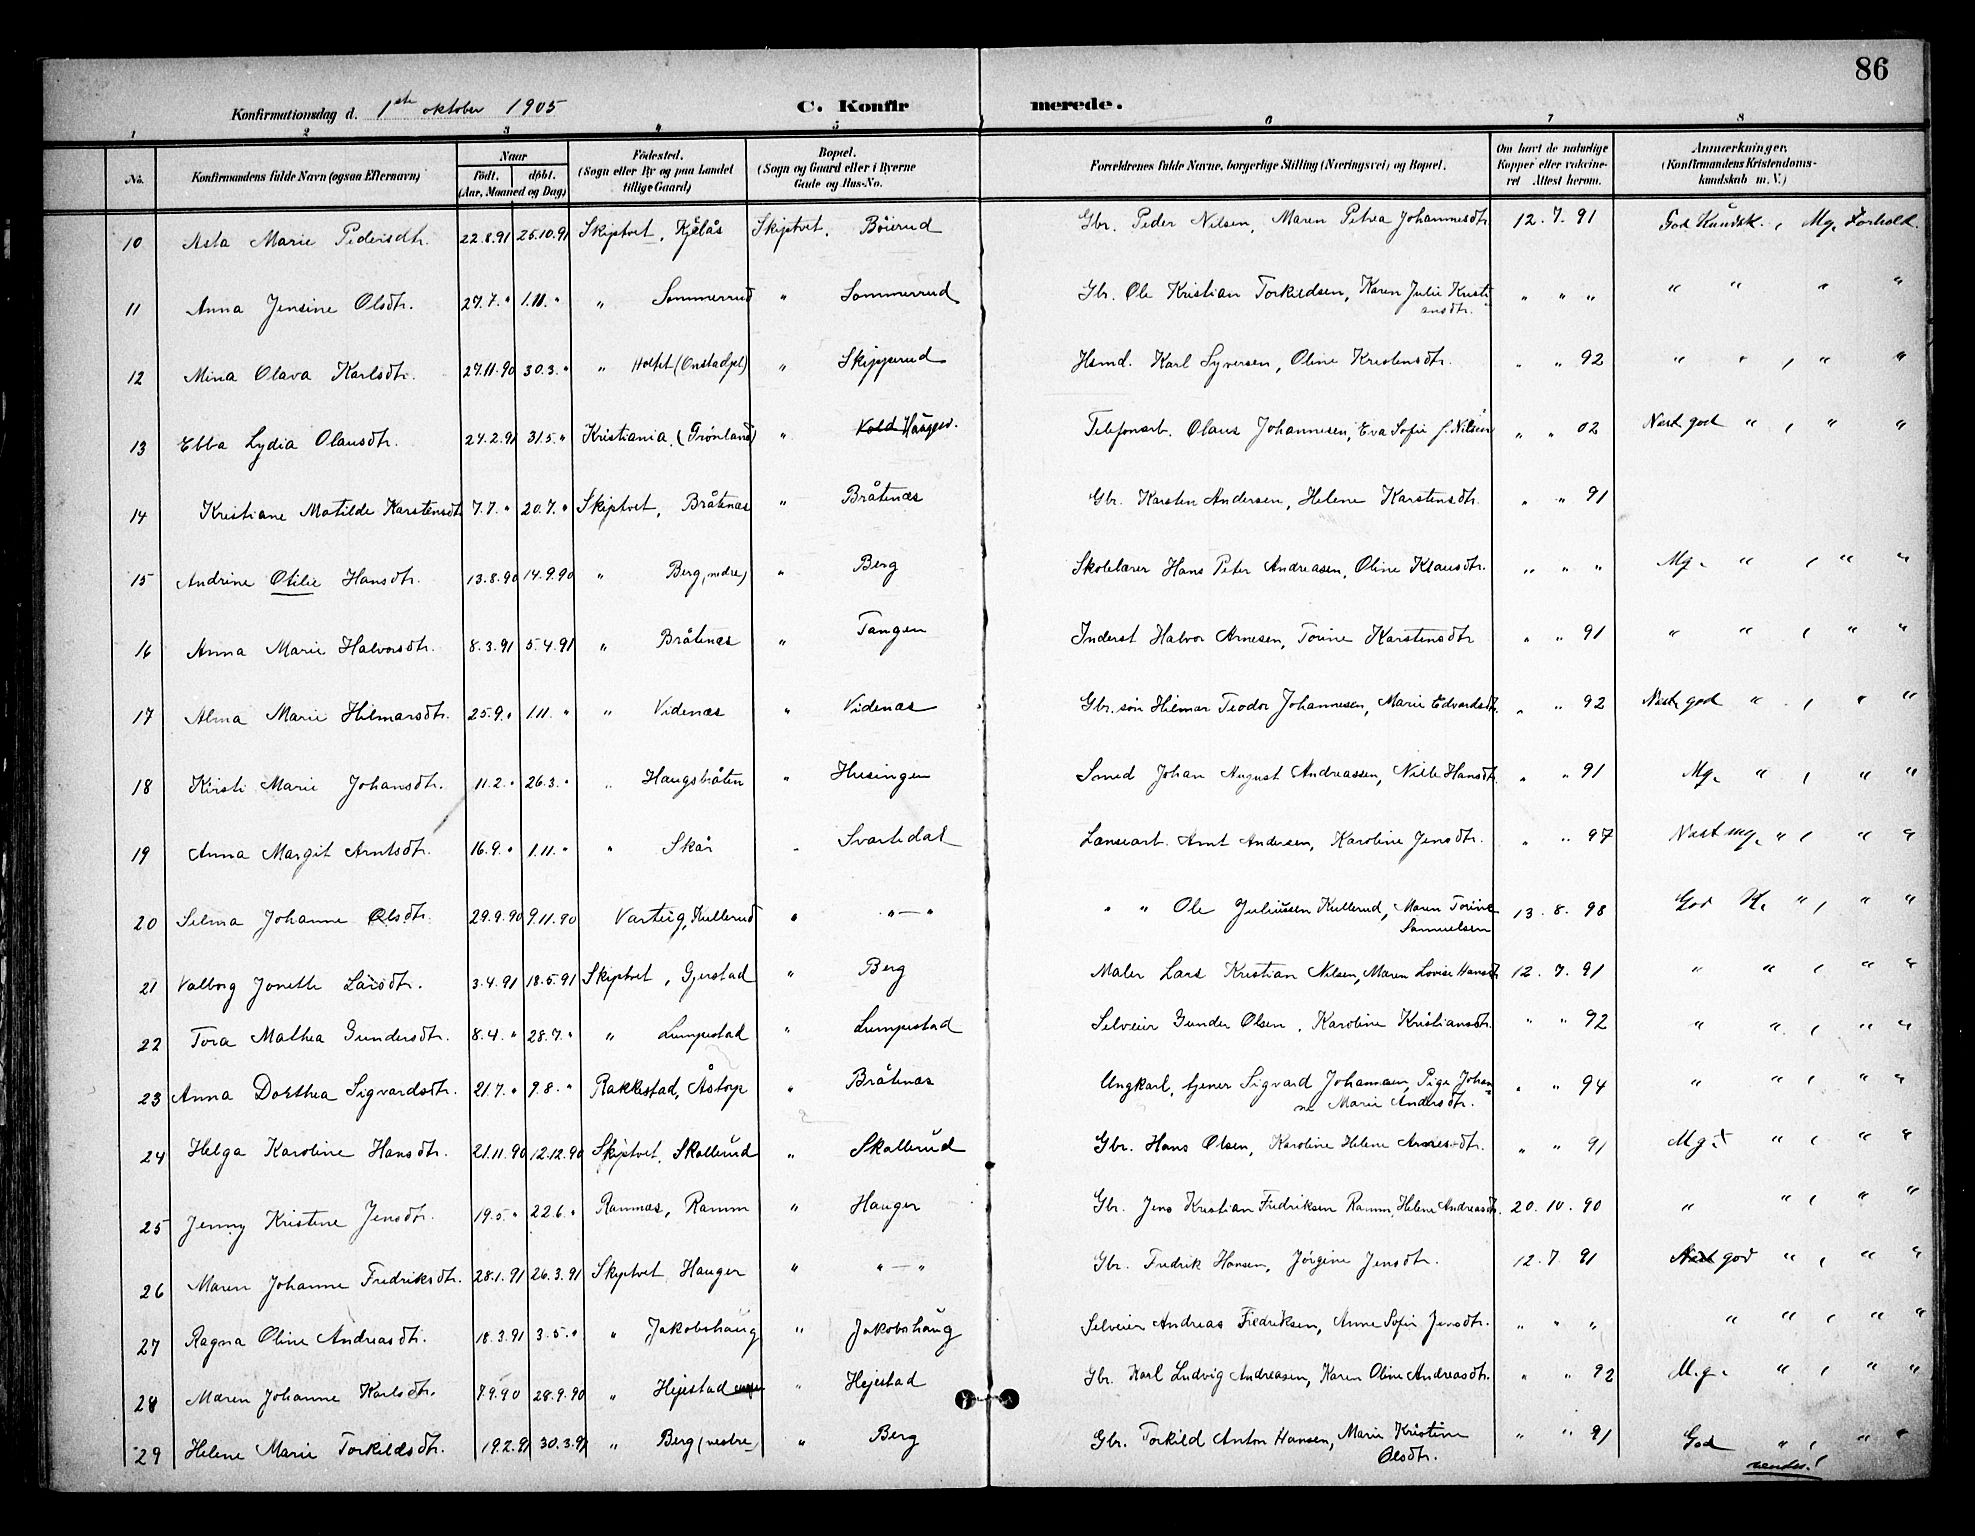 86
Konfirmationsdag d. 1ste oktober 1905 C. Konfirmerede.
1 2 3 4 5 6 7 8
No. Konfirmandens fulde Navn (ogsaa Efternavn) Naar født. døbt. (Aar, Maaned og Dag) Fødested. (Sogn eller By og paa Landet tillige Gaard) Bopæl. (Sogn og Gaard eller i Byerne Gade og Hus-No. Forældrenes fulde Navne, borgerlige Stilling (Næringsvei) og Bopæl. Om havt de naturlige Kopper eller vakcineret Attest herom. Anmærkninger. (Konfirmandens Kristendomskundskab m. V.)
10 Asta Marie Pedersdtr. 22.8.91 25.10.91 Skiptvet, Kjølås Skiptvet, Böierud Gbr. Peder Nilsen, Maren Petrea Johannesdtr 12. 7. 91 God Kundsk., Mg. Forhold.
11 Anna Jensine Olsdtr. 27.7. " 1.11. " " Sommerrud " Sommerrud Gbr. Ole Kristian Torkildsen, Karen Julie Kristiansdtr. " " " " " " "
12 Mina Olava Karlsdtr. 27.11.90 30.3. " " Holtet (Onstadpl) " Skipperud Hsmd. Karl Syversen, Oline Kristensdtr. " " 92 " " , " "
13 Ebba Lydia Olausdtr. 24.2.91 31.5. " Kristiania (Grønland) " Vold Haugen. Telefonarb. Olaus Johannesen, Eva Sofie f. Nilsen " " 02 Næst god " , " "
14 Kristiane Matilde Karstensdtr 7.7. " 20.7. " Skiptvet, Bråtenæs " Bråtenæs Gbr. Karsten Andersen, Helene Karstensdtr. " " 91
15 Andrine Otilie Hansdtr. 13.8.90 14.9.90 " Berg, nedre) " Berg Skolelærer Hans Peter Andreasen, Oline Klausdtr. " " " Mg. " , " "
16 Anna Marie Halvorsdtr. 8.3.91 5.4.91 " Bråtenæs " Tangen Inderst Halvor Arnesen, Torine Karstensdtr " " 91 " " , " "
17 Alma Marie Hilmarsdtr. 25.9. " 1.11. " " Videnæs " Videnæs Gbr.søn Hilmar Teodor Johannesen, Marie Edvardsdtr. " " 92 Næst god " , " "
18 Kirsti Marie Johansdtr. 11.2. " 26.3. " " Haugsbråten " Husingen Smed Johan August Andreassen, Nille Hansdtr. " " 91 Mg. " , " "
19 Anna Margit Arntsdtr. 16.9. " 1.11. " " Skår " Svartedal Lænsearb. Arnt Andersen, Karoline Jensdtr. " " 97 Næst mg. " , " "
20 Selma Johanne Olsdtr. 29.9.90 9.11.90 Varteig, Kullerud " " — " " " Ole Juliussen Kullerud, Maren Torine Samuelsen 13. 8. 98 God K. " , " "
21 Valborg Jonette Larsdtr. 3.4.91 18.5.91 Skiptvet, Gjerstad " Berg Maler Lars Kristian Nilsen, Maren Lovise Hansdtr 12. 7. 91 " " , " "
22 Tora Mathea Gundersdtr. 8.4. " 28.7. " " Lumpestad " Lumpestad Selveier Gunder Olsen, Karoline Kristiansdtr. " " 92 " " , " "
23 Anna Dorthea Sigvardsdtr. 21.7. " 9.8. " Rakkestad, Åstorp " Bråtenæs Ungkarl, tjener Sigvard Johannsen, Pige Johanne Marie Andersdtr. " " 94 " " , " "
24 Helga Karoline Hansdtr. 21.11.90 12.12.90 Skiptvet, Skallerud " Skallerud Gbr. Hans Olsen, Karoline Helene Arnesdtr. " " 91 Mg. " , " "
25 Jenny Kristine Jensdtr. 19.5. " 22.6. " Ramnæs, Ramm " Hauger Gbr. Jens Kristian Fredriksen Ramm, Helene Andreasdtr. 20. 10. 90 " " , " "
26 Maren Johanne Fredriksdtr. 28.1.91 26.3.91 Skiptvet, Hauger " " — " Gbr. Fredrik Hansen, Jørgine Jensdtr. 12. 7. 91 Næst god " , " "
27 Ragna Oline Andreasdtr. 18.3.91 3.5. " " Jakobshaug " Jakobshaug Selveier Andreas Fredriksen, Anne Sofie Jensdtr. " " " " " , " "
28 Maren Johanne Karlsdtr. 7.9.90 28.9.90 " Hejestad " Hejestad Gbr. Karl Ludvig Andreasen, Karen Oline Andreasdtr. " " 92 M.g. " , " "
29 Helene Marie Torkildsdtr. 19.2.91 30.3.91 " Berg (vestre) " Berg Gbr. Torkild Anton Hansen, Marie Kristine Olsdtr. " " 91 God " , " "
vendes!